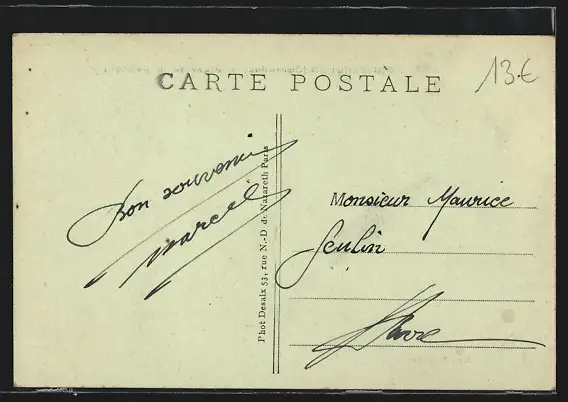 CARTE POSTALE
13€
Bon souvenir
Marcel
Phot Desaix 53, rue N.-D de Nazareth Paris
Monsieur Maurice
Havre